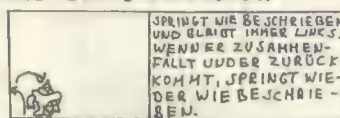 SPRINGT WIE BESCHRIEBEN
UND BLEIBT IMMER LINKS.
WENN ER ZUSAMMEN-
FÄLLT UND ER ZURÜCK
KOMMT, SPRINGT WIE-
DER WIE BESCHRIE-
BEN.